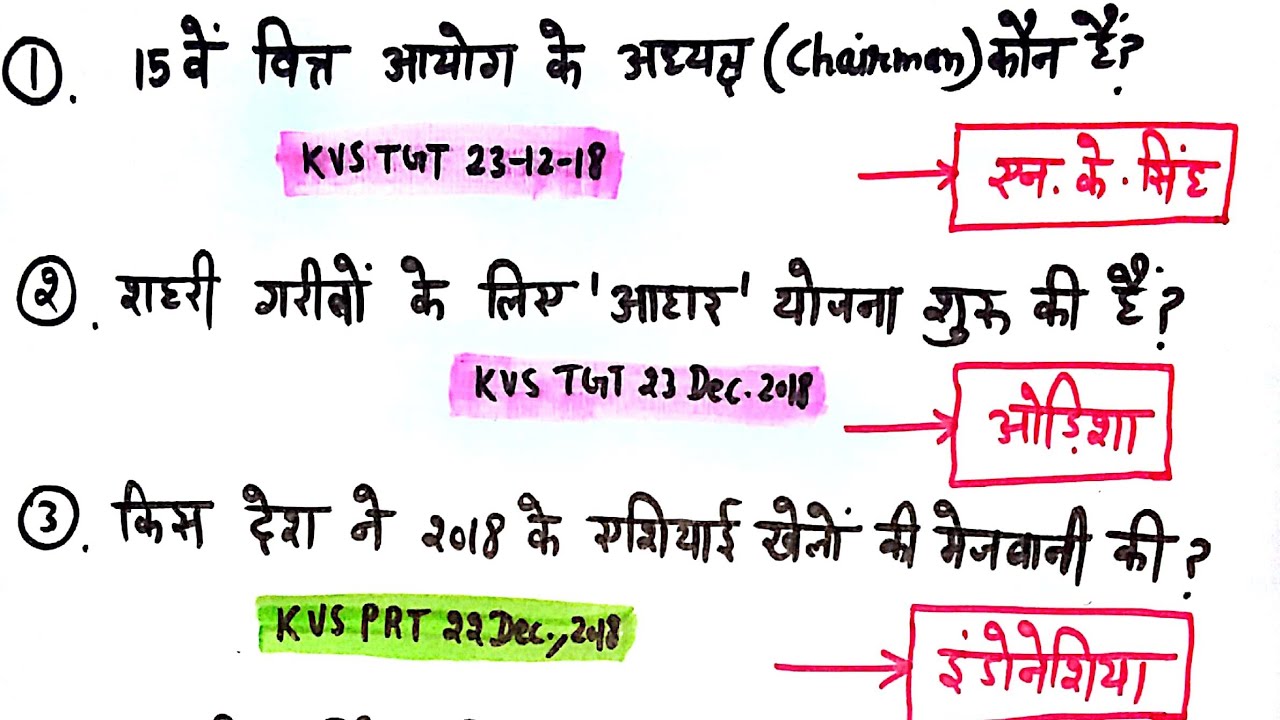 ① . 15 वें वित्त आयोग के अध्यक्ष (Chairman) कौन हैं?
KVS TGT 23-12-18
→ एन. के. सिंह
② . शहरी गरीबों के लिए 'आहार' योजना शुरू की हैं?
KVS TGT 23 Dec. 2018
→ ओड़िशा
③ . किस देश ने 2018 के एशियाई खेलों की मेजबानी की?
KVS PRT 22 Dec., 2018
→ इंडोनेशिया